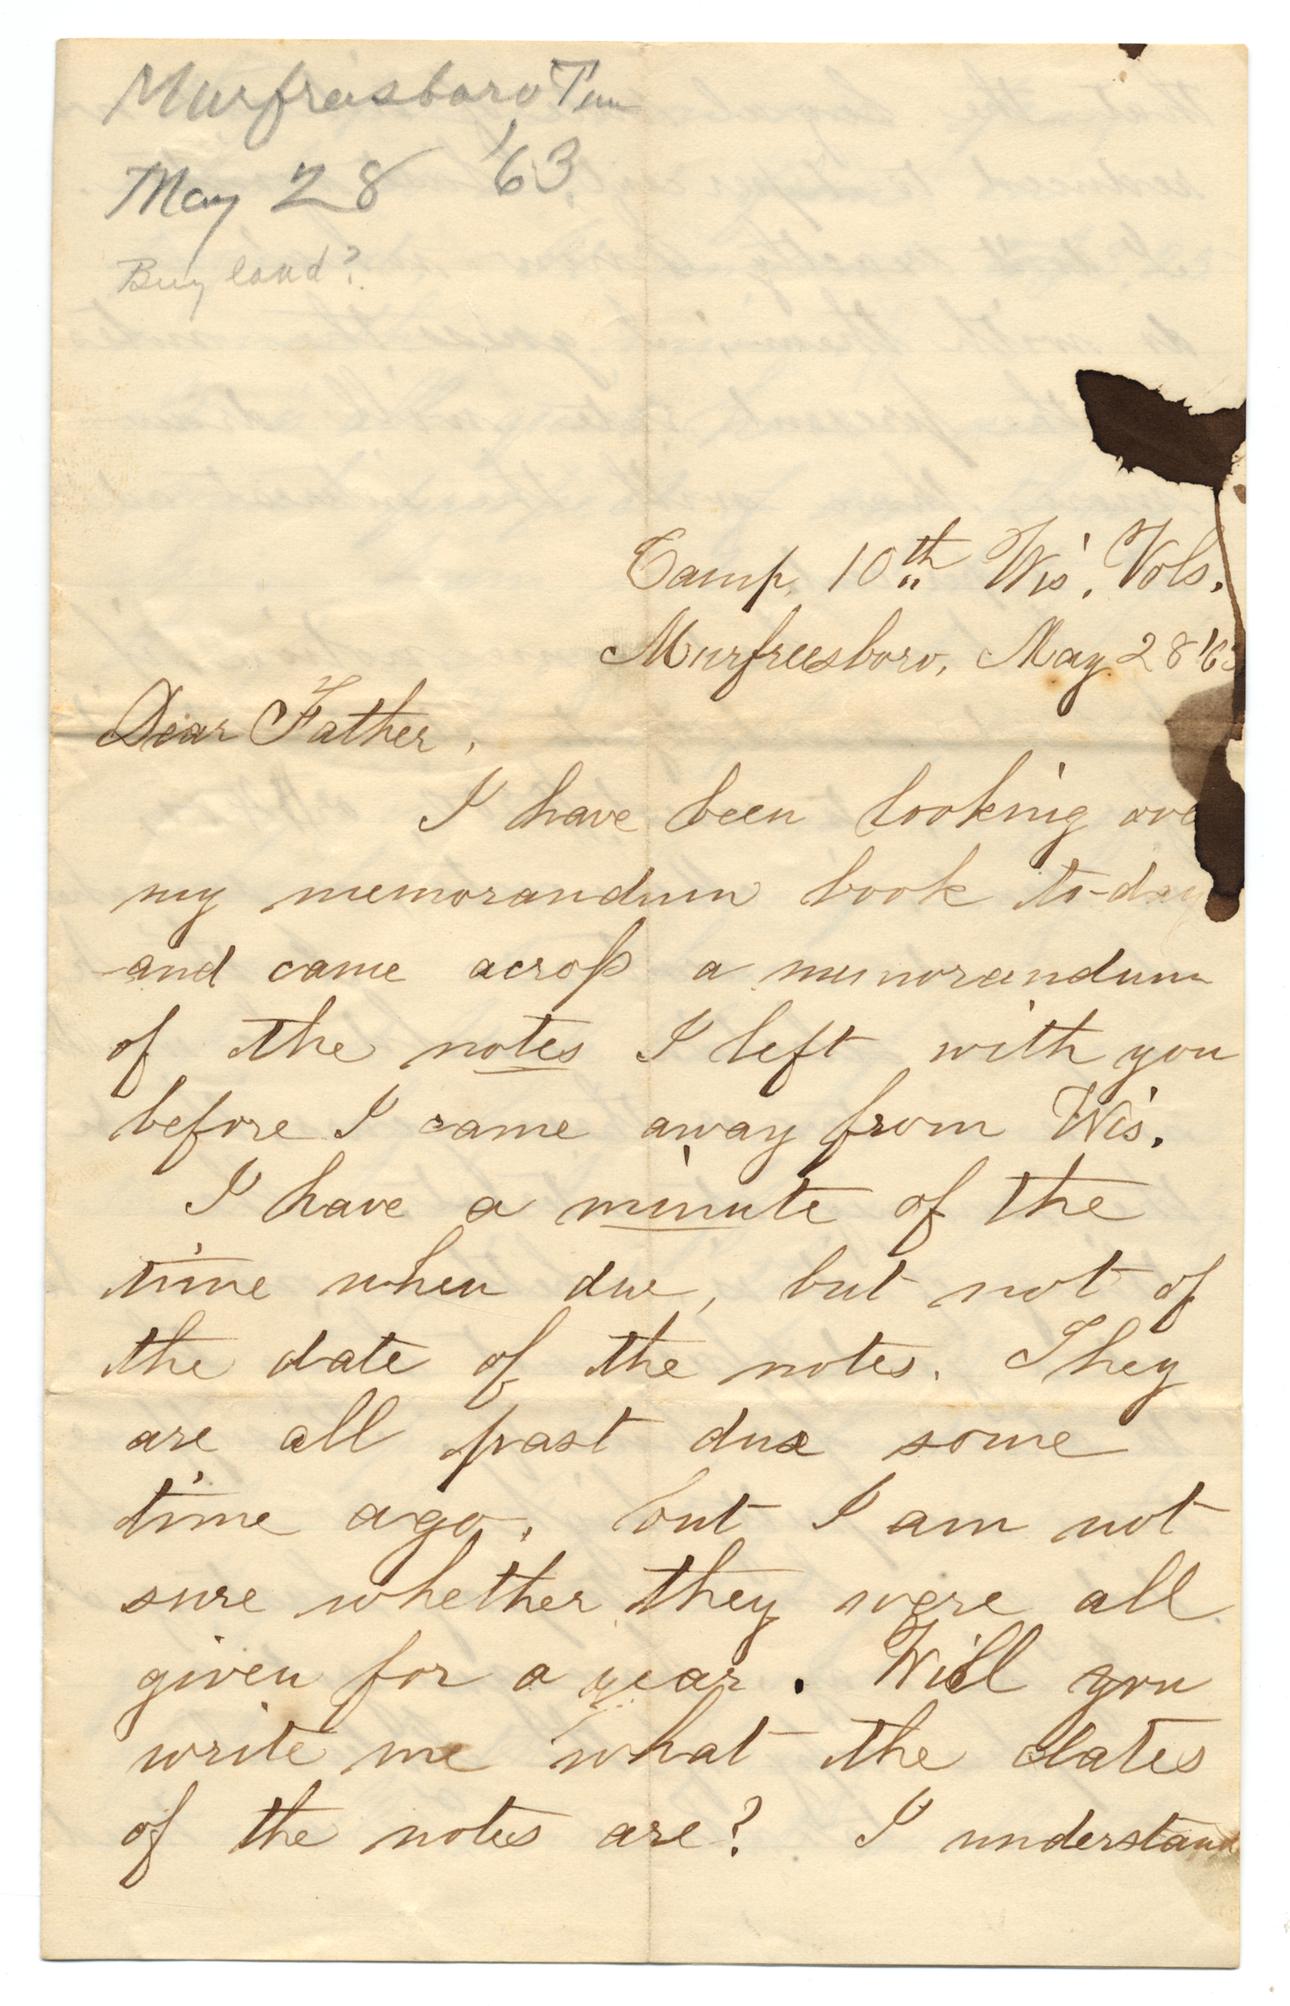 Murfreesboro Tenn
May 28 '63
Buy land?
Camp, 10th Wis. Vols.
Murfreesboro, May 28 '63
Dear Father,
I have been looking over
my memorandum book to-day
and came across a memorandum
of the notes I left with you
before I came away from Wis.
I have a minute of the
time when due, but not of
the date of the notes. They
are all past due some
time ago, but I am not
sure whether they were all
given for a year. Will you
write me what the dates
of the notes are? I understand